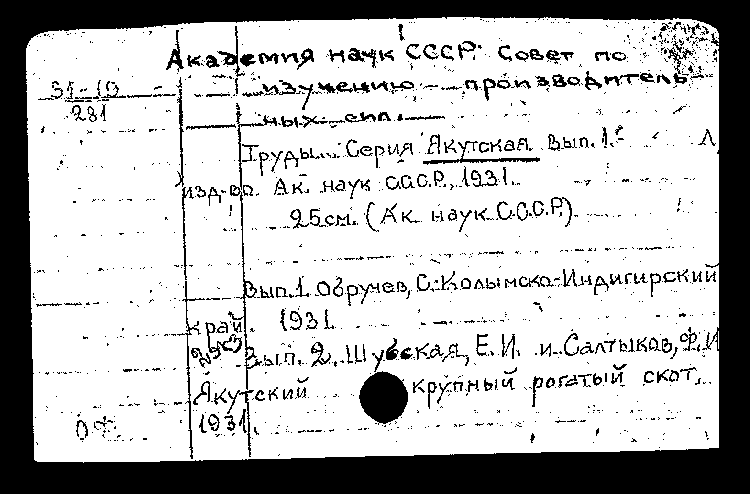 Академия наук СССР. Совет по
31-10
281
изучению производитель-
ных сил.
Труды. Серия Якутская. Вып. 1. Л,
изд-во Ак. наук С.С.С.Р., 1931.
25см. (Ак. наук С.С.С.Р.)
Вып.1. Обручев, С. Колымско-Индигирский
край. 1931.
Вып. 2. Шубская, Е.И. и Салтыков, Ф.И
Якутский крупный рогатый скот.
ОФ 1931.